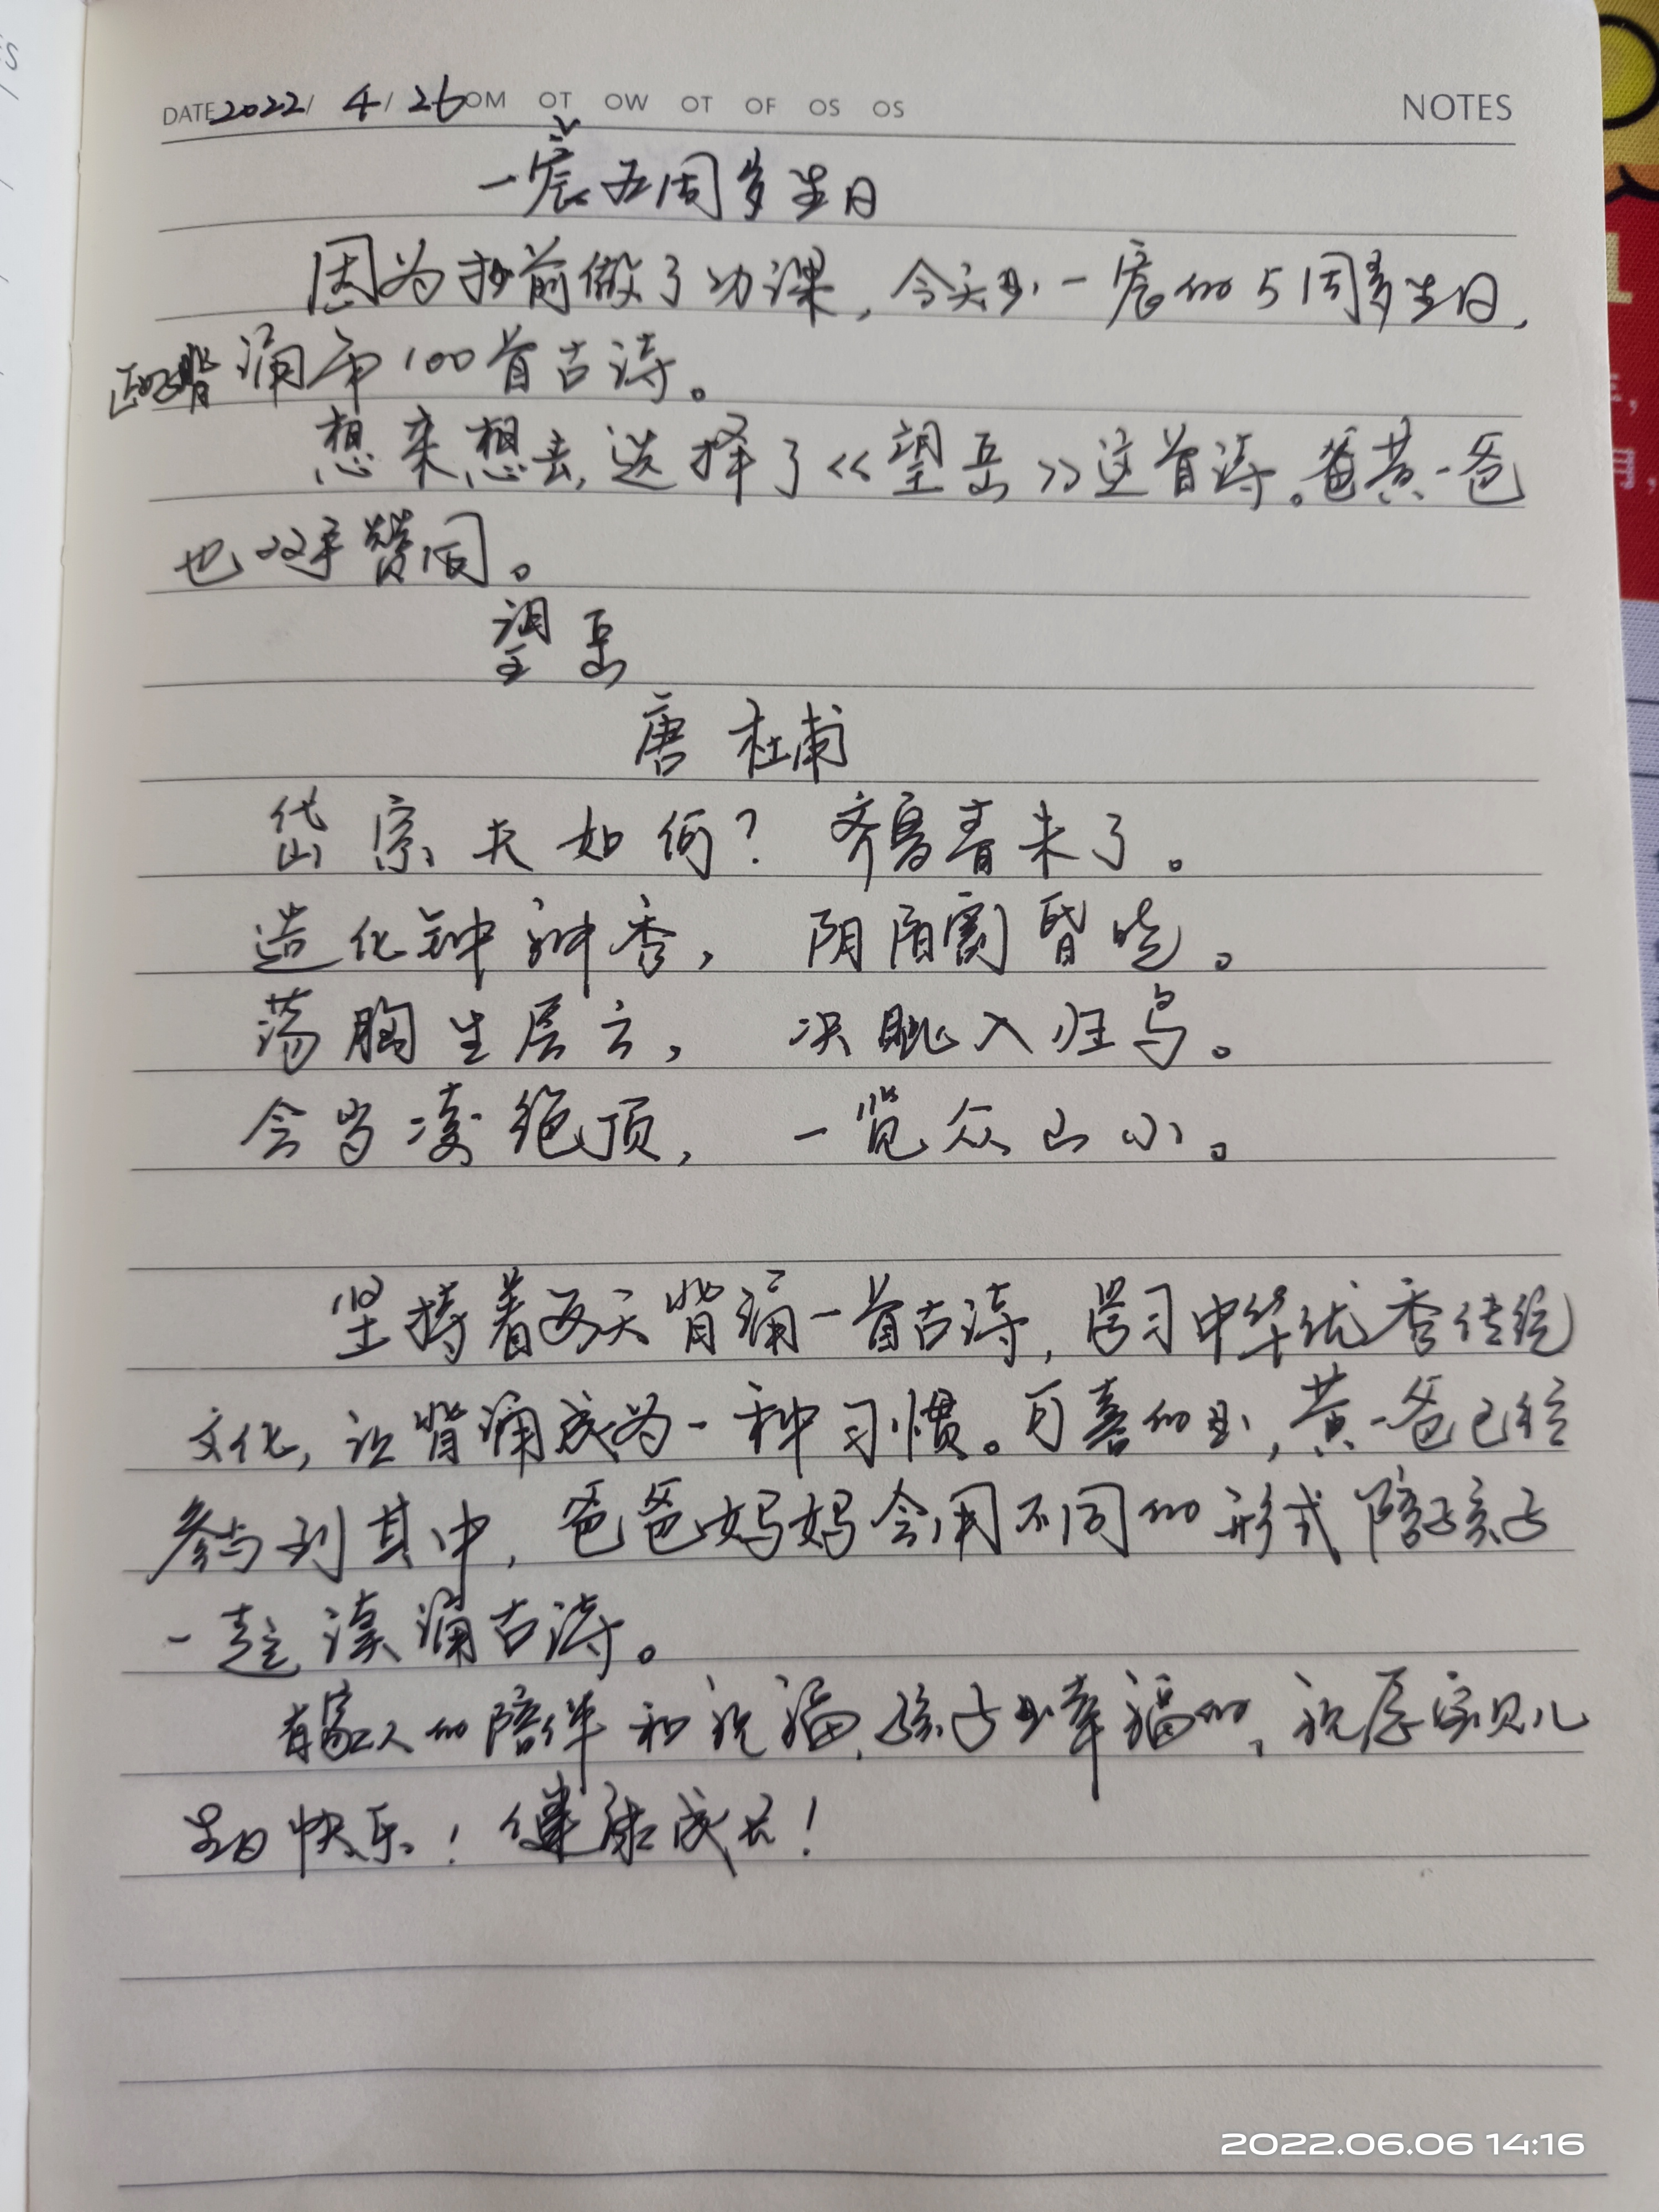 DATE 2022/ 4/ 26 OM OT OW OT OF OS OS NOTES
一宸五周岁生日
因为提前做了功课,今天是一宸的5周岁生日,
正好背诵第100首古诗。
想来想去,选择了《望岳》这首诗。爸黄一爸
也双手赞同。
望岳
唐 杜甫
岱宗夫如何?齐鲁青未了。
造化钟神秀,阴阳割昏晓。
荡胸生层云,决眦入归鸟。
会当凌绝顶,一览众山小。
坚持着每天背诵一首古诗,学习中华优秀传统
文化,让背诵成为一种习惯。可喜的是,黄一爸已经
参与到其中,爸爸妈妈会用不同的形式陪孩子
一起读诵古诗。
有家人的陪伴和祝福,孩子是幸福的,祝宸宝贝儿
生日快乐!健康成长!
2022.06.06 14:16